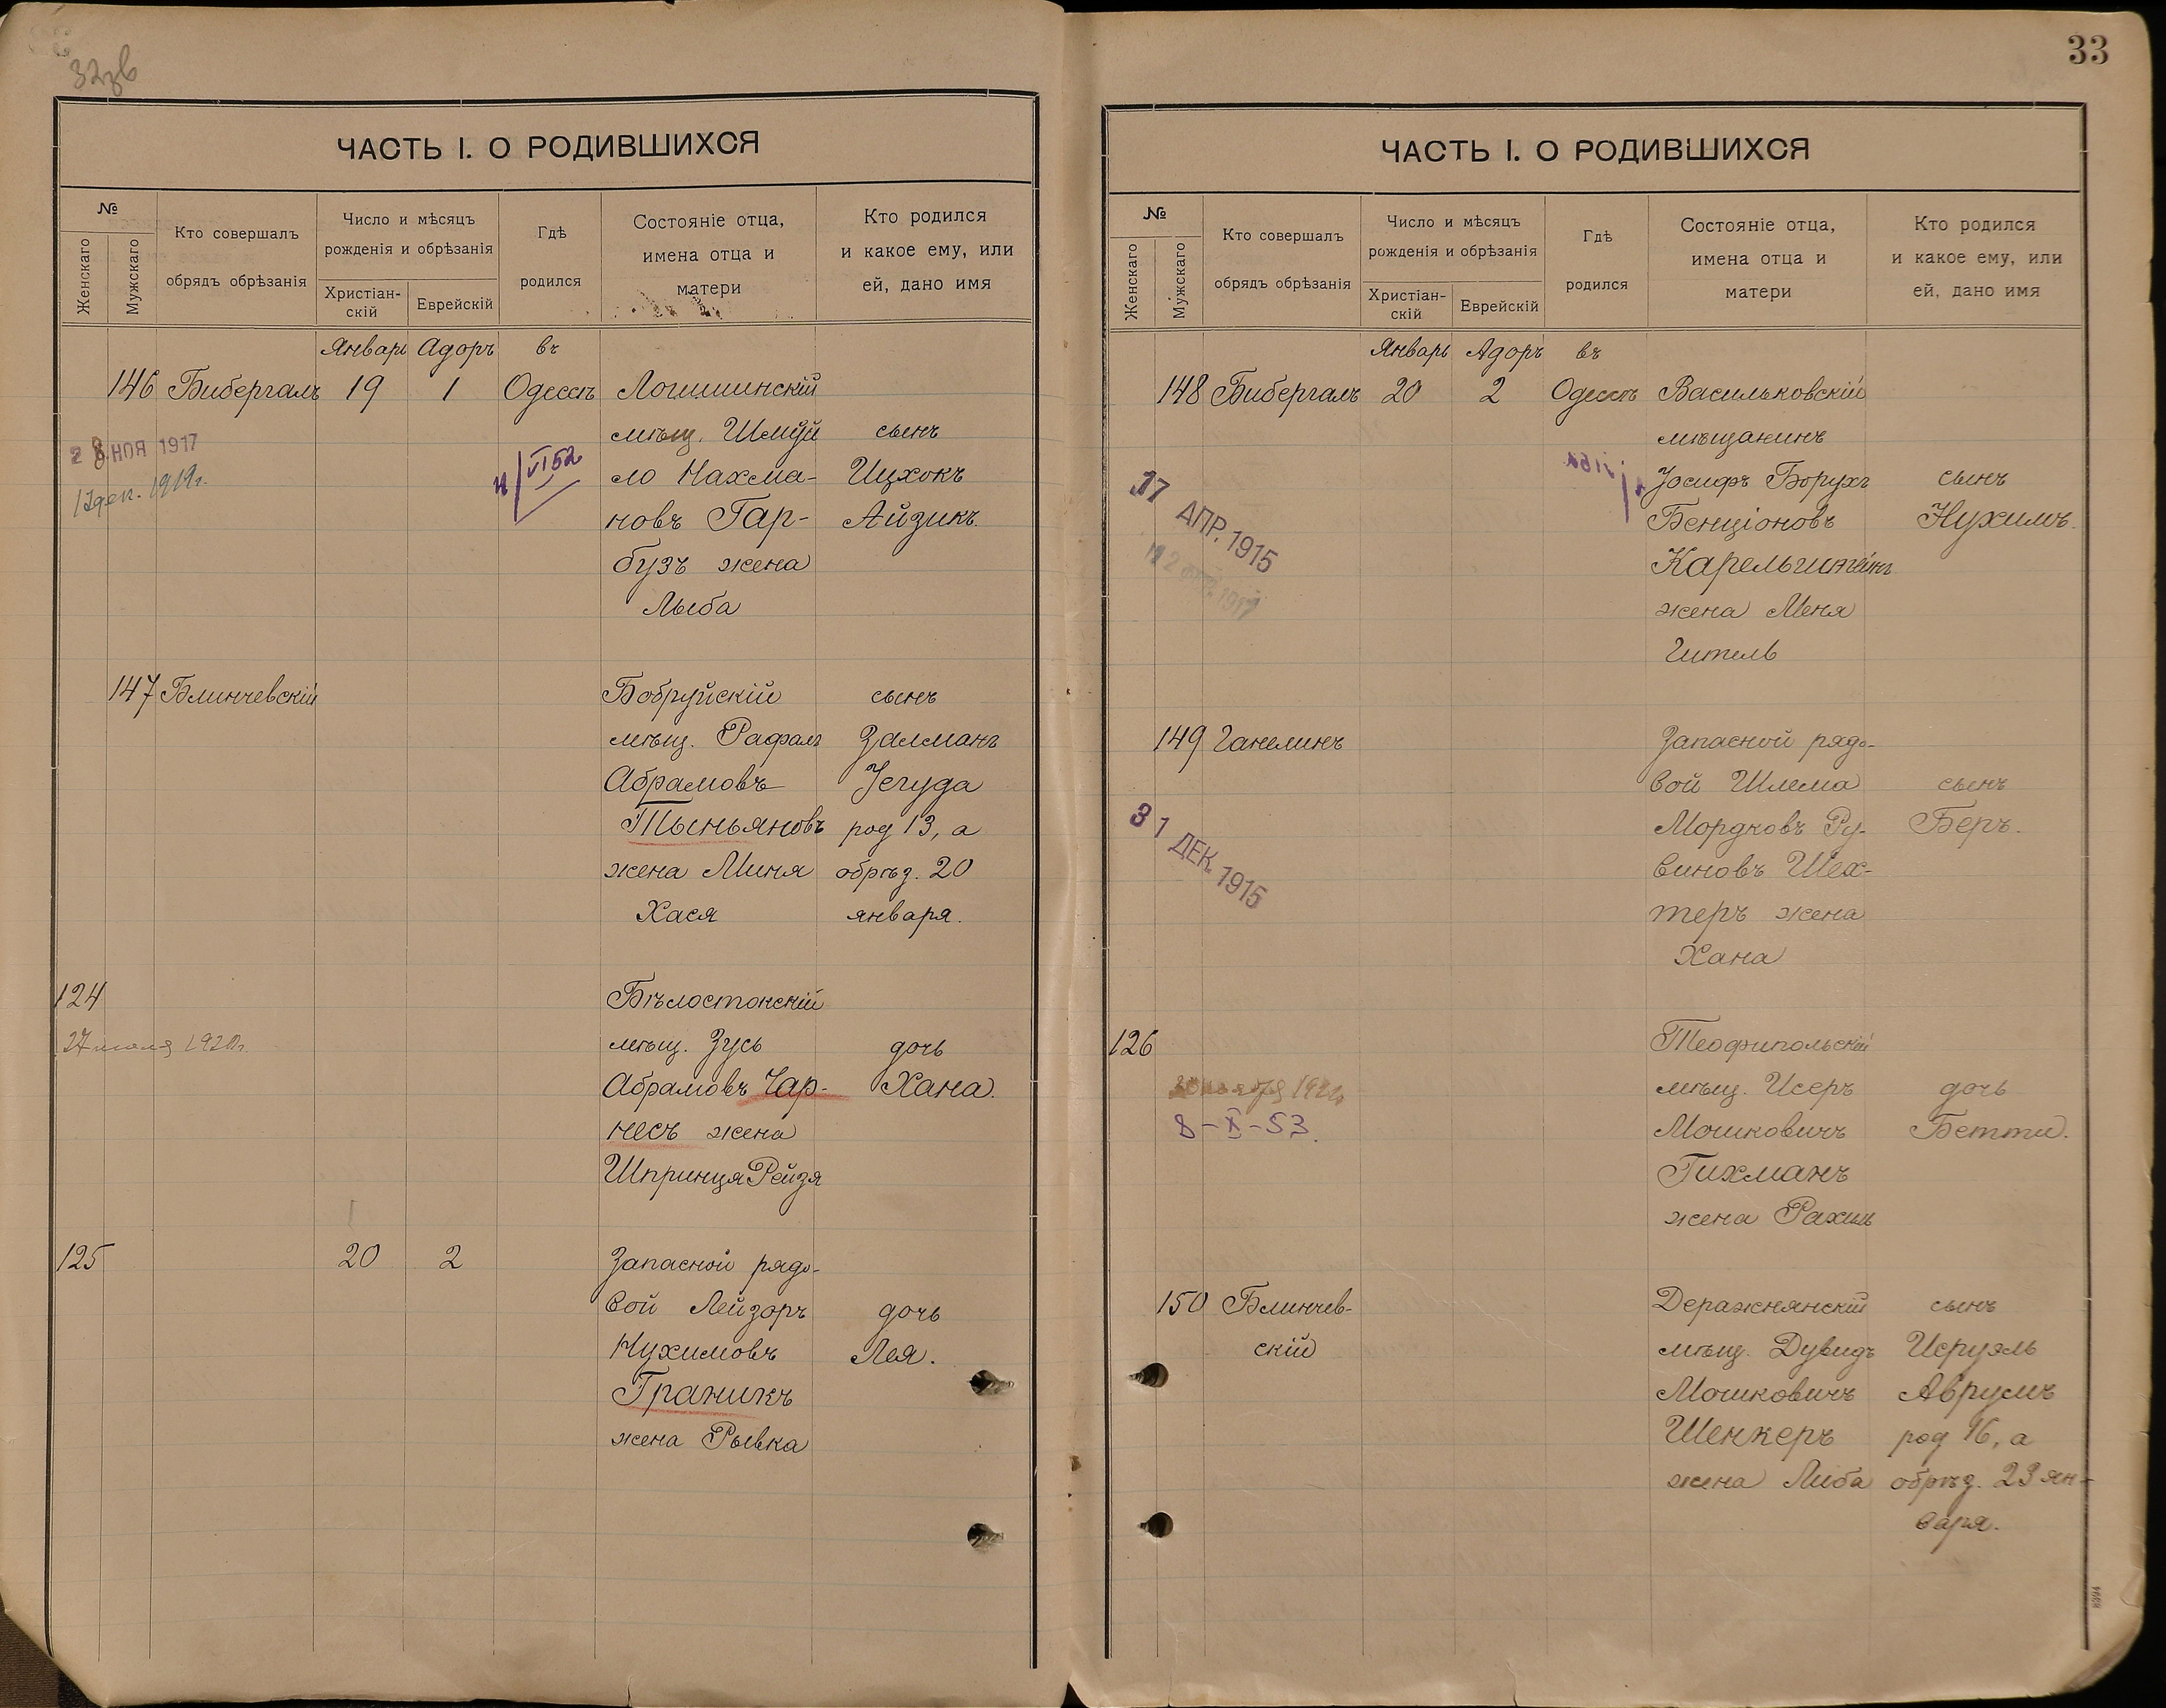 32об
ЧАСТЬ I. О РОДИВШИХСЯ
№
Женскаго
Мужскаго
Кто совершалъ
обрядъ обрѣзанія
Число и мѣсяцъ
рожденія и обрѣзанія
Христіан-
скій
Еврейскій
Гдѣ
родился
Состояніе отца,
имена отца и
матери
Кто родился
и какое ему, или
ей, дано имя
Январь Адоръ въ
146 Бибергалъ 19 1 Одессѣ Логишинскій
мѣщ. Шмуй сынъ
ло Нахма- Ицхокъ
новъ Гар- Айзикъ.
бузъ жена
Лыба
НОЯ 1917
дек. 1919г.
VI 52
147 Блинчевскій Бобруйскій сынъ
мѣщ. Рафалъ Залманъ
Абрамовъ Іегуда
Тыньяновъ род 13, а
жена Миня обрѣз. 20
Хася января.
124 Бѣлостокскій
27 июля 1920г. мѣщ. Зусь дочь
Абрамовъ Чар- Хана.
несъ жена
Шпринця Рейзя
125 20 2 Запасной рядо-
вой Лейзоръ дочь
Нухимовъ Лея.
Граникъ
жена Рывка
33
ЧАСТЬ I. О РОДИВШИХСЯ
№
Женскаго
Мужскаго
Кто совершалъ
обрядъ обрѣзанія
Число и мѣсяцъ
рожденія и обрѣзанія
Христіан-
скій
Еврейскій
Гдѣ
родился
Состояніе отца,
имена отца и
матери
Кто родился
и какое ему, или
ей, дано имя
Январь Адоръ въ
148 Бибергалъ 20 2 Одессѣ Васильковскій
мѣщанинъ
Іосифъ Борухъ сынъ
Бенціоновъ Нухимъ.
Карельштейнъ
жена Меня
Гитель
17 АПР. 1915
1917
149 Ганелинъ Запасной рядо-
вой Шлема сынъ
Мордковъ Ру- Беръ.
виновъ Шех-
теръ жена
Хана
31 ДЕК. 1915
126 Теофипольскій
мѣщ. Исеръ дочь
Мошковичъ Бетти.
Гихманъ
жена Рахиль
8-X-53.
150 Блинчев- Деражнянскій сынъ
скій мѣщ. Дувидъ Исруэль
Мошковичъ Аврумъ
Шенкеръ род 16, а
жена Либа обрѣз. 23 ян-
варя.